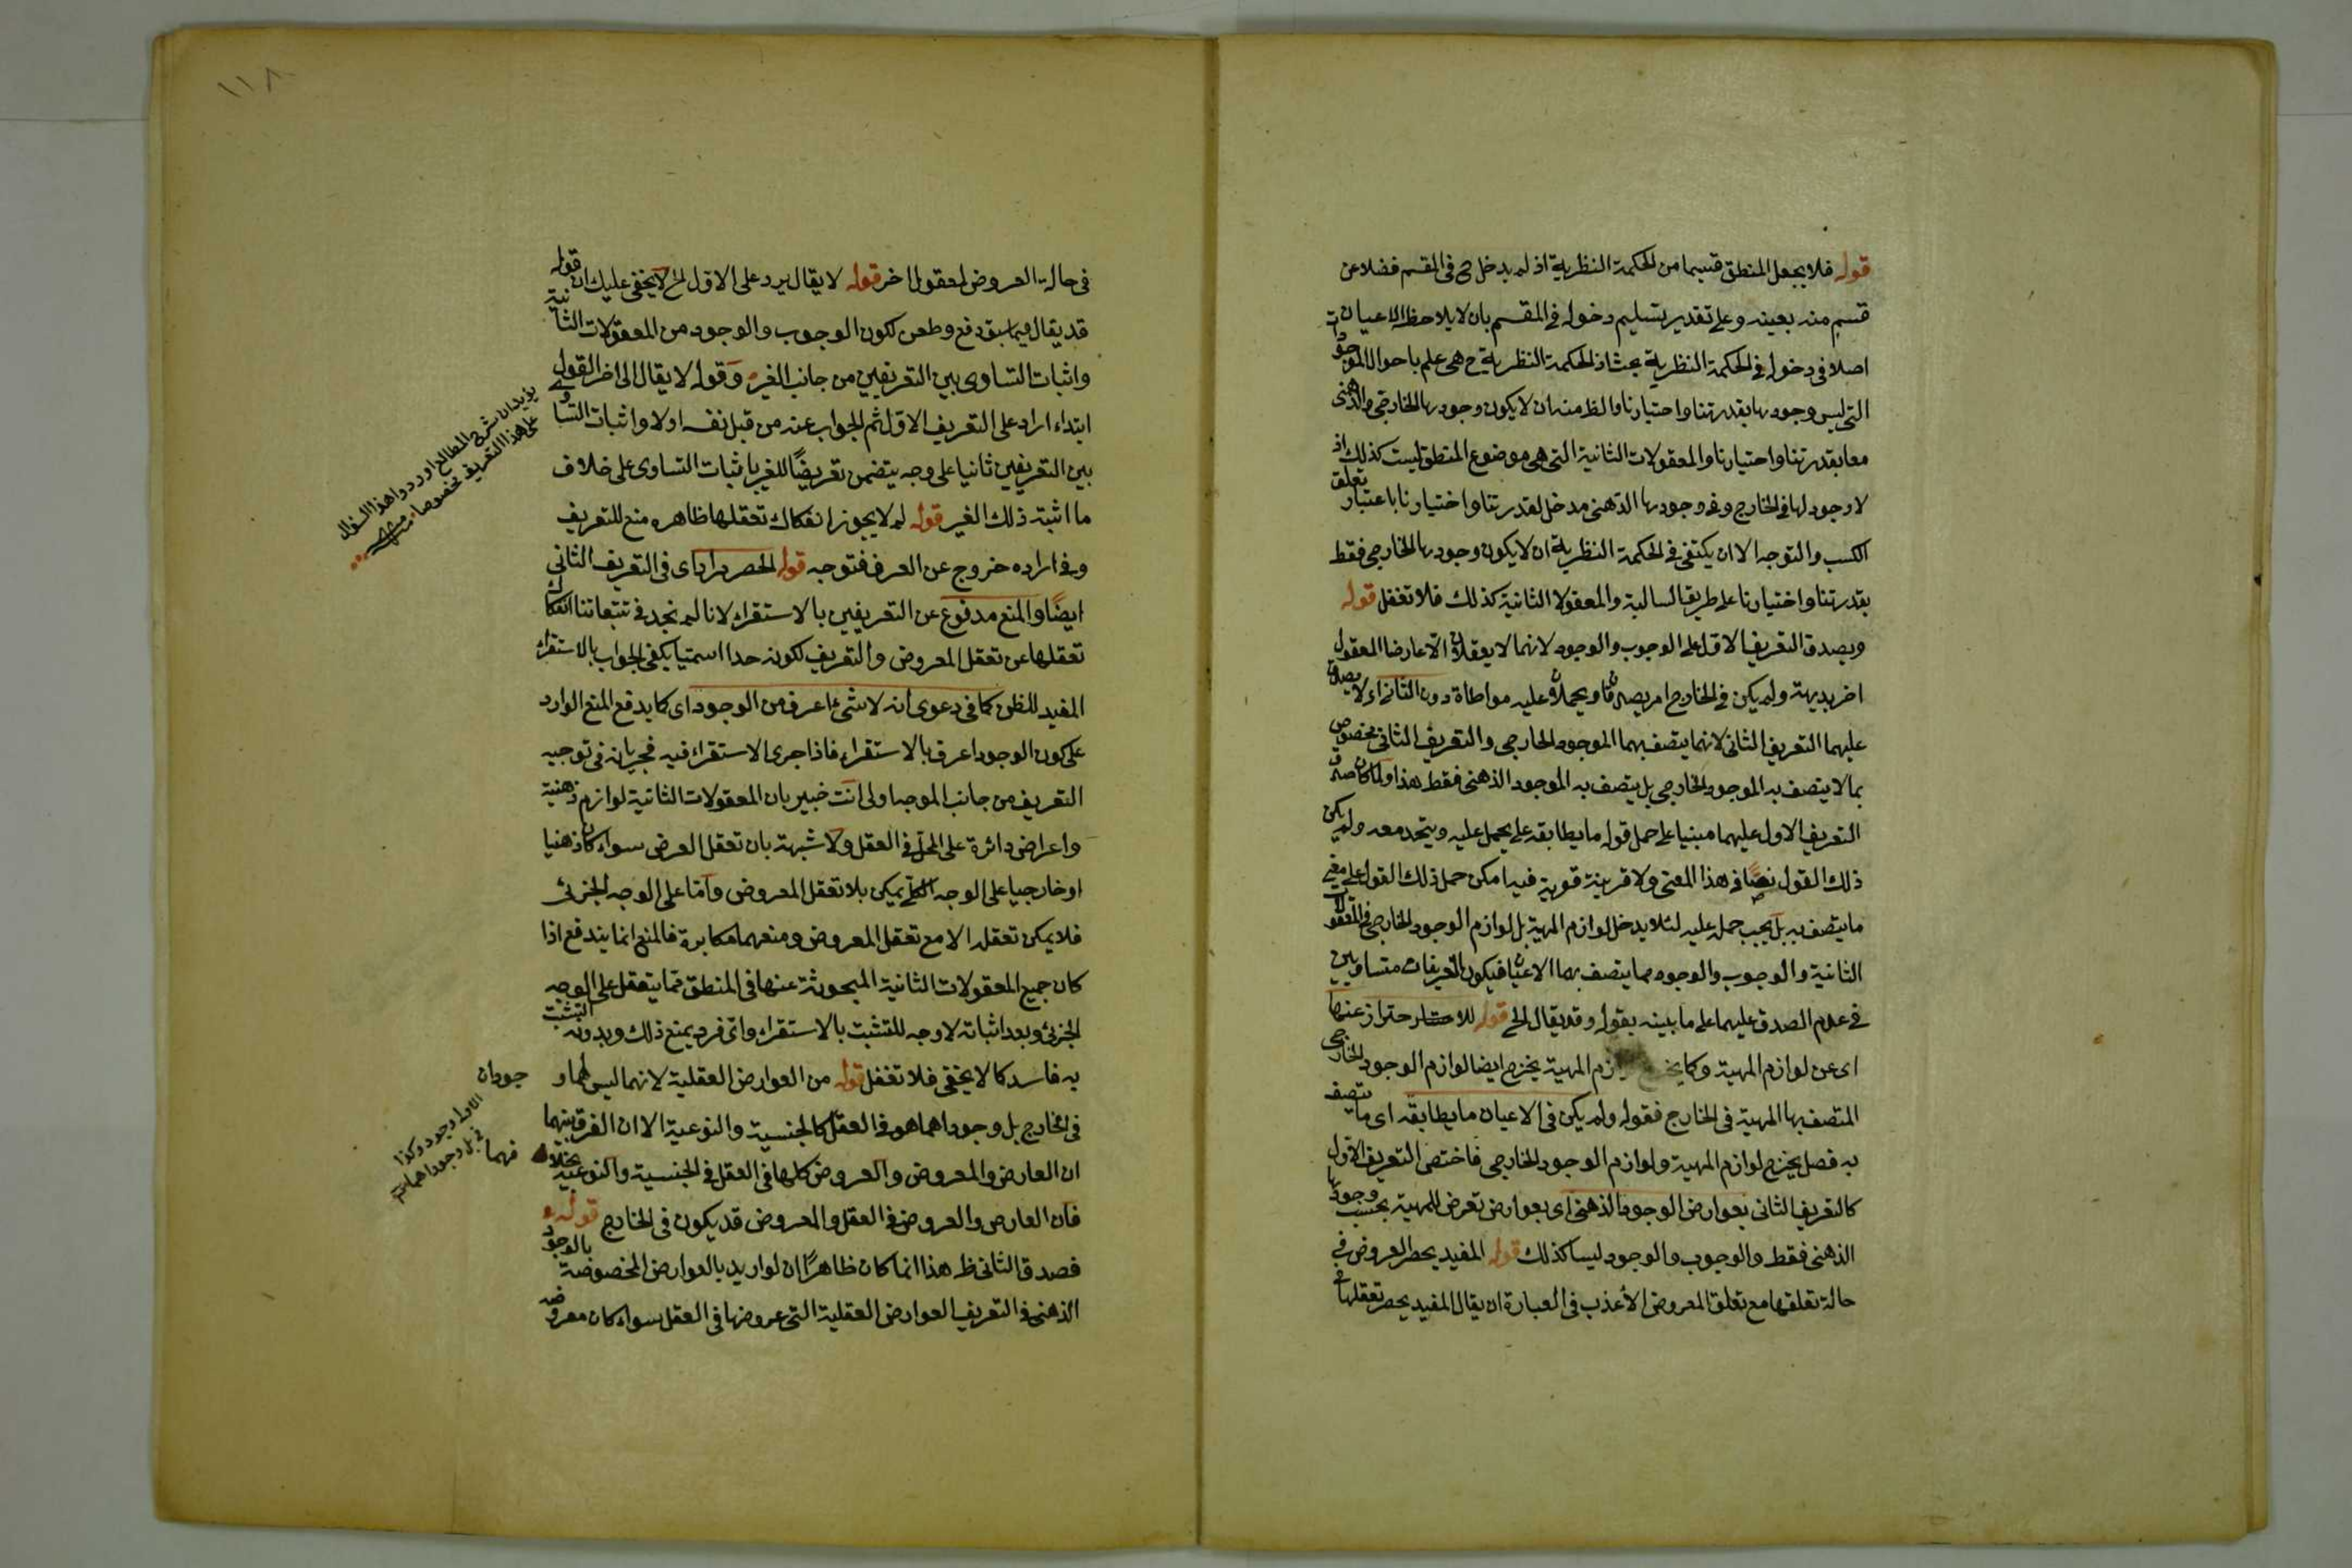 قوله فلا يجعل المنطق قسيما من الحكمة النظرية اذ لم يدخل ح في المقسم فضلا عن
قسم منه بعينه وعلى تقدير تسليم دخوله في المقسم بان لا يلاحظ الاعيان
اصلا في دخوله في الحكمة النظرية بحث اذ الحكمة النظرية ح هي علم باحوال الموجودات
التي ليس وجودها بقدرتنا واختيارنا والظ منه ان لا يكون وجودها الخارجي والذهني
معا بقدرتنا واختيارنا والمعقولات الثانية التي هي موضوع المنطق ليست كذلك اذ
لا وجود لها في الخارج وفي وجودها الذهني مدخل لقدرتنا واختيارنا باعتبار تعلق
الكسب والتوجه الا ان يكتفى في الحكمة النظرية ان لا يكون وجودها الخارجي فقط
بقدرتنا واختيارنا على طريق السالبة والمعقولا الثانية كذلك فلا تغفل قوله
ويصدق التعريف الاول على الوجوب والوجود لانهما لا يعقلان الا عارضا المعقول
اخر بديهة ولم يكن في الخارج امر يصدقا ويحملا عليه مواطاة دون الثاني اي لا يصدق
عليهما التعريف الثاني لانهما يتصف بهما الموجود الخارجي والتعريف الثاني مخصوص
بما لا يتصف به الموجود الخارجي بل يتصف به الموجود الذهني فقط هذا ولما كان صدق
التعريف الاول عليهما مبنيا على حمل قوله ما يطابقه على يحمل عليه ويتحد معه ولم يكن
ذلك القول نصا في هذا المعنى ولا قرينة قوية فيه امكن حمل ذلك القول على معنى
ما يتصف به بل يجب حمله عليه لئلا يدخل لوازم المهية بل لوازم الوجود الخارجي في المعقولات
الثانية والوجوب والوجود مما يتصف بهما الاعيان فيكون التعريفات متساويين
في عدم الصدق عليهما على ما بينه بقوله وقد يقال الخ قوله للاحتراز عنها
اى عن لوازم المهية وكما المهية يخرج ايضا لوازم الوجود الخارجي
المتصف بها المهية في الخارج فقوله ولم يكن في الاعيان ما يطابقه اى ما يتصف
به فصل يخرج لوازم المهية ولوازم الوجود الخارجي فاختص التعريف الاول
كالتعريف الثاني بعوارض الوجود الذهني اى بعوارض تعرض للمهية بحسب وجودها
الذهني فقط والوجوب والوجود ليسا كذلك قوله المفيد بحصر العروض في
حالة تعلقها مع تعلق المعروض الأعذب في العبارة ان يقال المفيد بحصر تعقلها في
١١٨
في حالة العروض لمعقول اخر قوله لا يقال يرد على الاول الخ لا يخفى عليك ان قوله
قد يقال فيما سبق دفع وطعن لكون الوجوب والوجود من المعقولات الثانية
واثبات التساوى بين التعريفين من جانب الغير وقوله لا يقال الى اخر القول
ابتداء اراد على التعريف الاول ثم الجواب عنه من قبل نفسه اولا واثبات التساوى
بين التعريفين ثانيا على وجه يتضمن تعريضًا للغير باثبات التساوى على خلاف
ما اثبته ذلك الغير قوله لم لا يجوز انفكاك تعقلها ظاهره منع للتعريف
وفي اراده خروج عن العرف فتوجه قوله الحصر مراد اى في التعريف الثاني
ايضًا والمنع مدفوع عن التعريفين بالاستقراء لانا لم نجد في تتبعاتنا انفكاك
تعقلها عن تعقل المعروض والتعريف لكونه حدا اسميا يكفي الجواب بالاستقراء
المفيد للظن كما في دعوى انه لا شئ اعرف من الوجود اى كما يدفع المنع الوارد
على كون الوجود اعرف بالاستقراء فاذا جرى الاستقراء فيه فجريانه في توجيه
التعريف من جانب الموجه اولى انت خبير بان المعقولات الثانية لوازم ذهنية
واعراض دائرة على المحل في العقل ولا شبهة بان تعقل العرض سواء كان ذهنيا
او خارجيا على الوجه الكلي يمكن بلا تعقل المعروض واما على الوجه الجزئى
فلا يمكن تعقله الا مع تعقل المعروض ومنعهما مكابرة فالمنع انما يندفع اذا
كان جميع المعقولات الثانية المبحوثة عنها في المنطق مما يتعقل على الوجه
الجزئى وبعد اثباته لا وجه للتشبث بالاستقراء واى فرد يمنع ذلك وبدونه التشبث
به فاسد كما لا يخفى فلا تغفل قوله من العوارض العقلية لانهما ليس لهما وجودان
في الخارج بل وجوداهما هو في العقل كالجنسية والنوعية الا ان الفرق بينهما
ان العارض والمعروض والعروض كلها في العقل في الجنسية والنوعية بخلاف
فان العارض والعروض في العقل والمعروض قد يكون في الخارج قوله و
فصدق الثاني ظ هذا انما كان ظاهرًا ان لو اريد بالعوارض المخصوصة بالوجود
الذهني في التعريف العوارض العقلية التي عروضها في العقل سواء كان معروضه
يريد ان شرح المطالع اوردوا هذا السؤال
على هذا التعريف بخصوصه